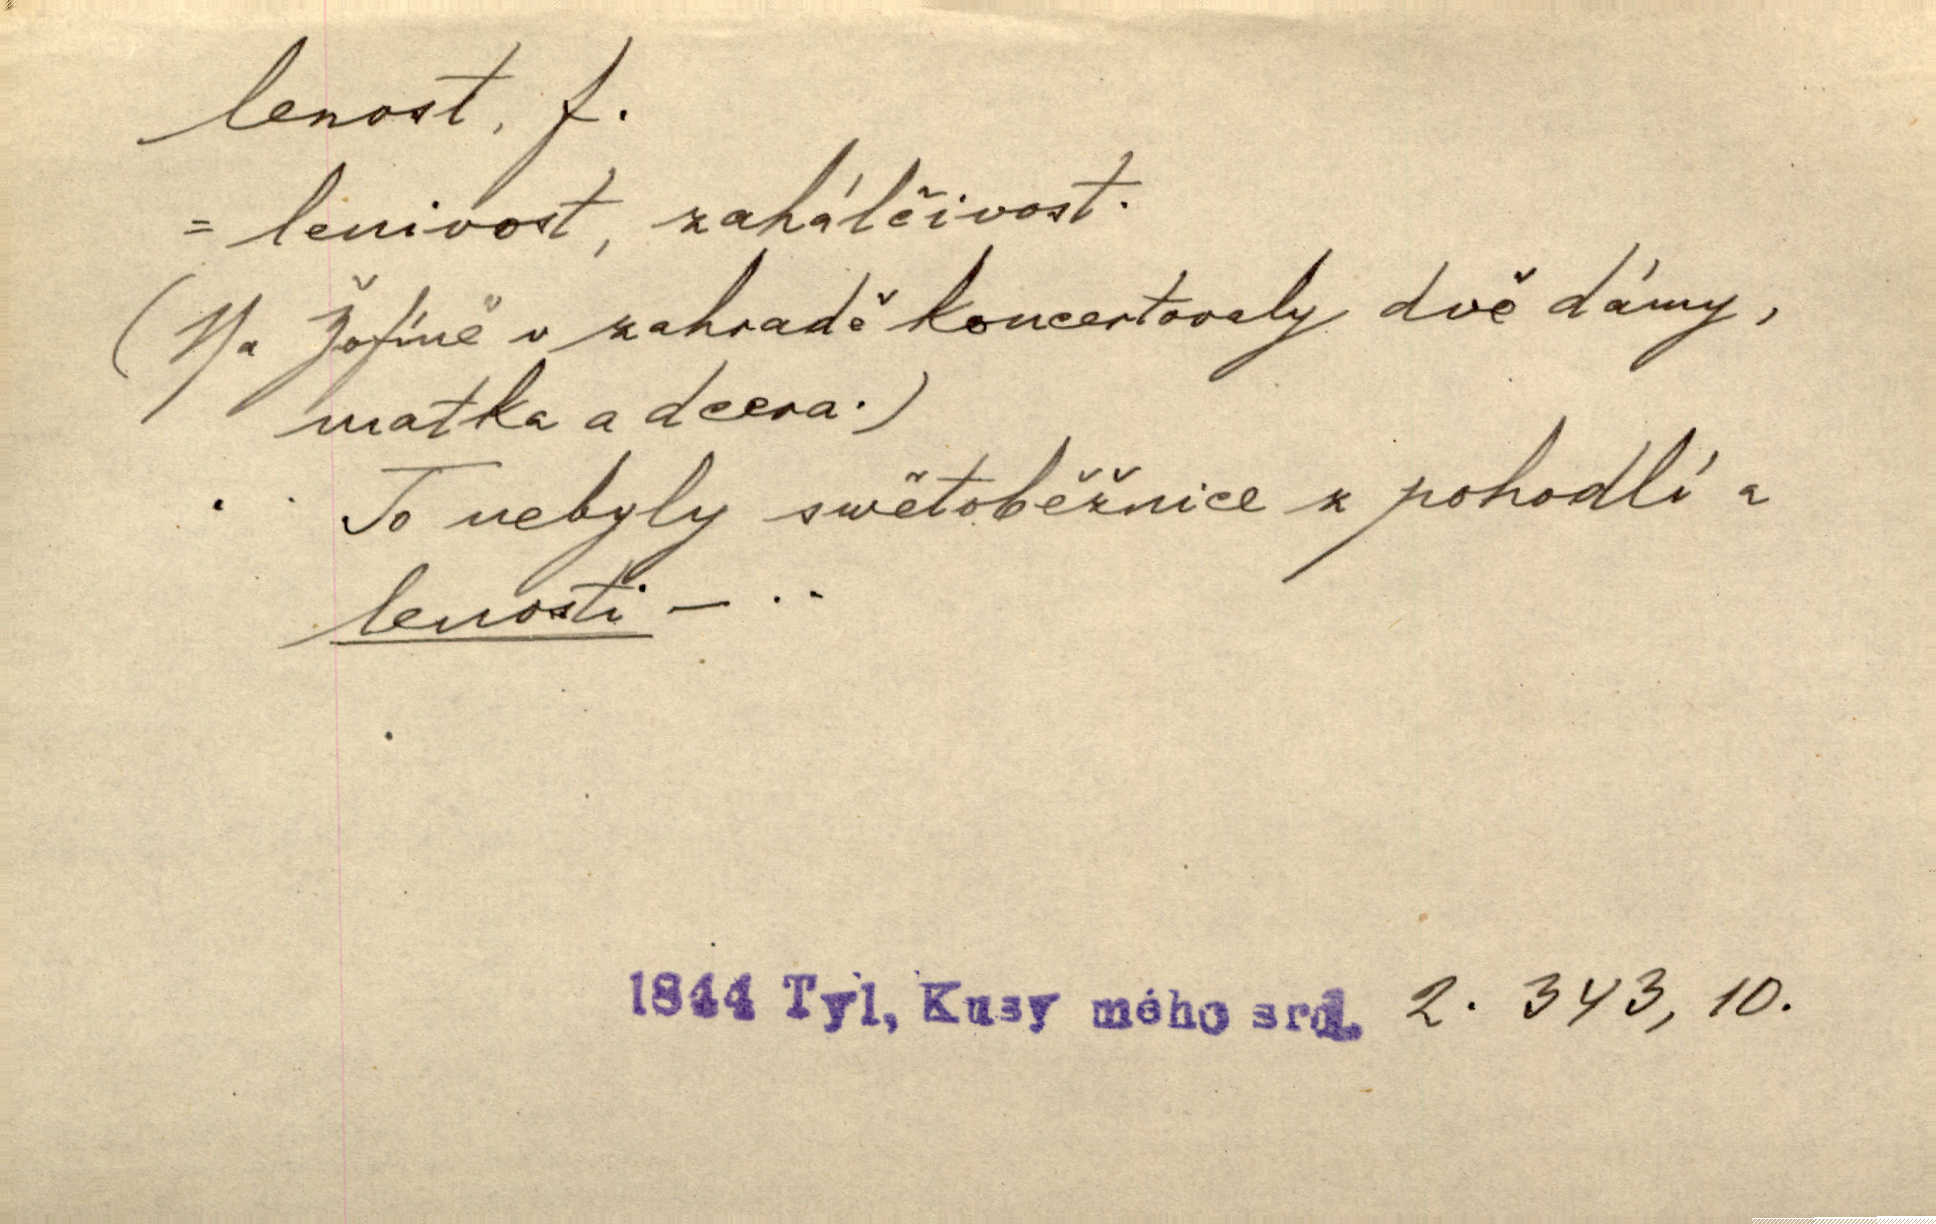 lenost, f.
= lenivost, zahálčivost.
(Na Žofíně v zahradě koncertovaly dvě dámy,
matka a dcera.)
To nebyly swětoběžnice z pohodlí a
lenosti – ..
1844 Tyl, Kusy mého srd. 2. 343, 10.